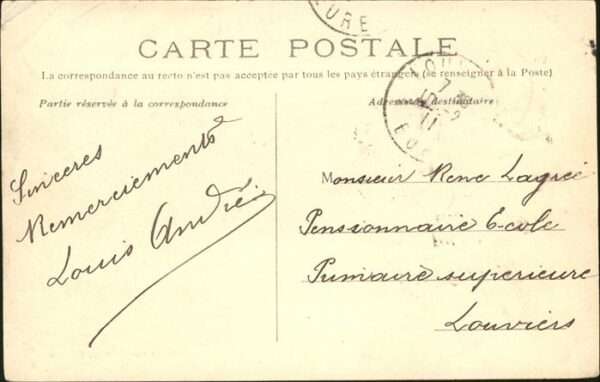 EURE
CARTE POSTALE
La correspondance au recto n'est pas acceptée par tous les pays étrangers (se renseigner à la Poste)
Partie réservée à la correspondance
Adresse du destinataire
7
11
Sinceres
Remerciements
Louis André
Monsieur Rene
Pensionnaire Ecole
Primaire superieure
Louviers